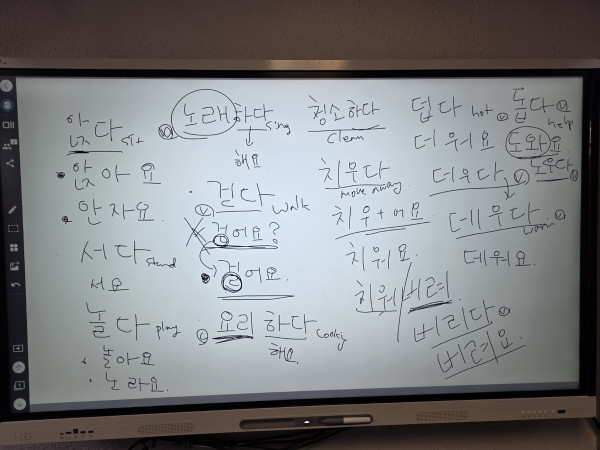 앉다 sit
앉아요
안자요.
서다 stand
서요
놀다 play
놀아요
노라요.
노래하다 sing
해요
걷다 walk
걷어요?
걸어요.
요리하다 cooking
해요
청소하다
clean
치우다
move away
치우+어요
치워요.
치워버려
버리다
버려요.
덥다 hot
더워요
더우다
데우다 warm
데워요.
돕다 help
도와요
도우다